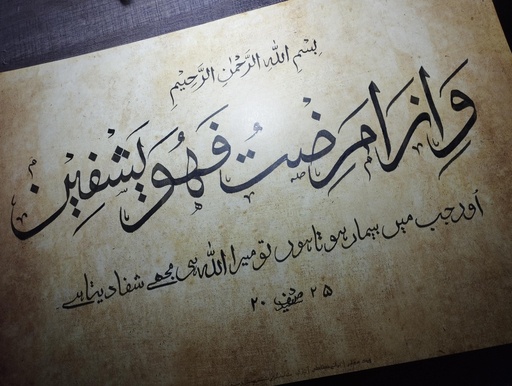 بِسْمِ اللهِ الرَّحْمٰنِ الرَّحِيْمِ
وَاِزَا مَرِضْتُ فَهُوَ يَشْفِيْنِ
اور جب میں بیمار ہوتا ہوں تو میرا اللہ ہی مجھے شفا دیتا ہے
۲۵ صفر ۲۰